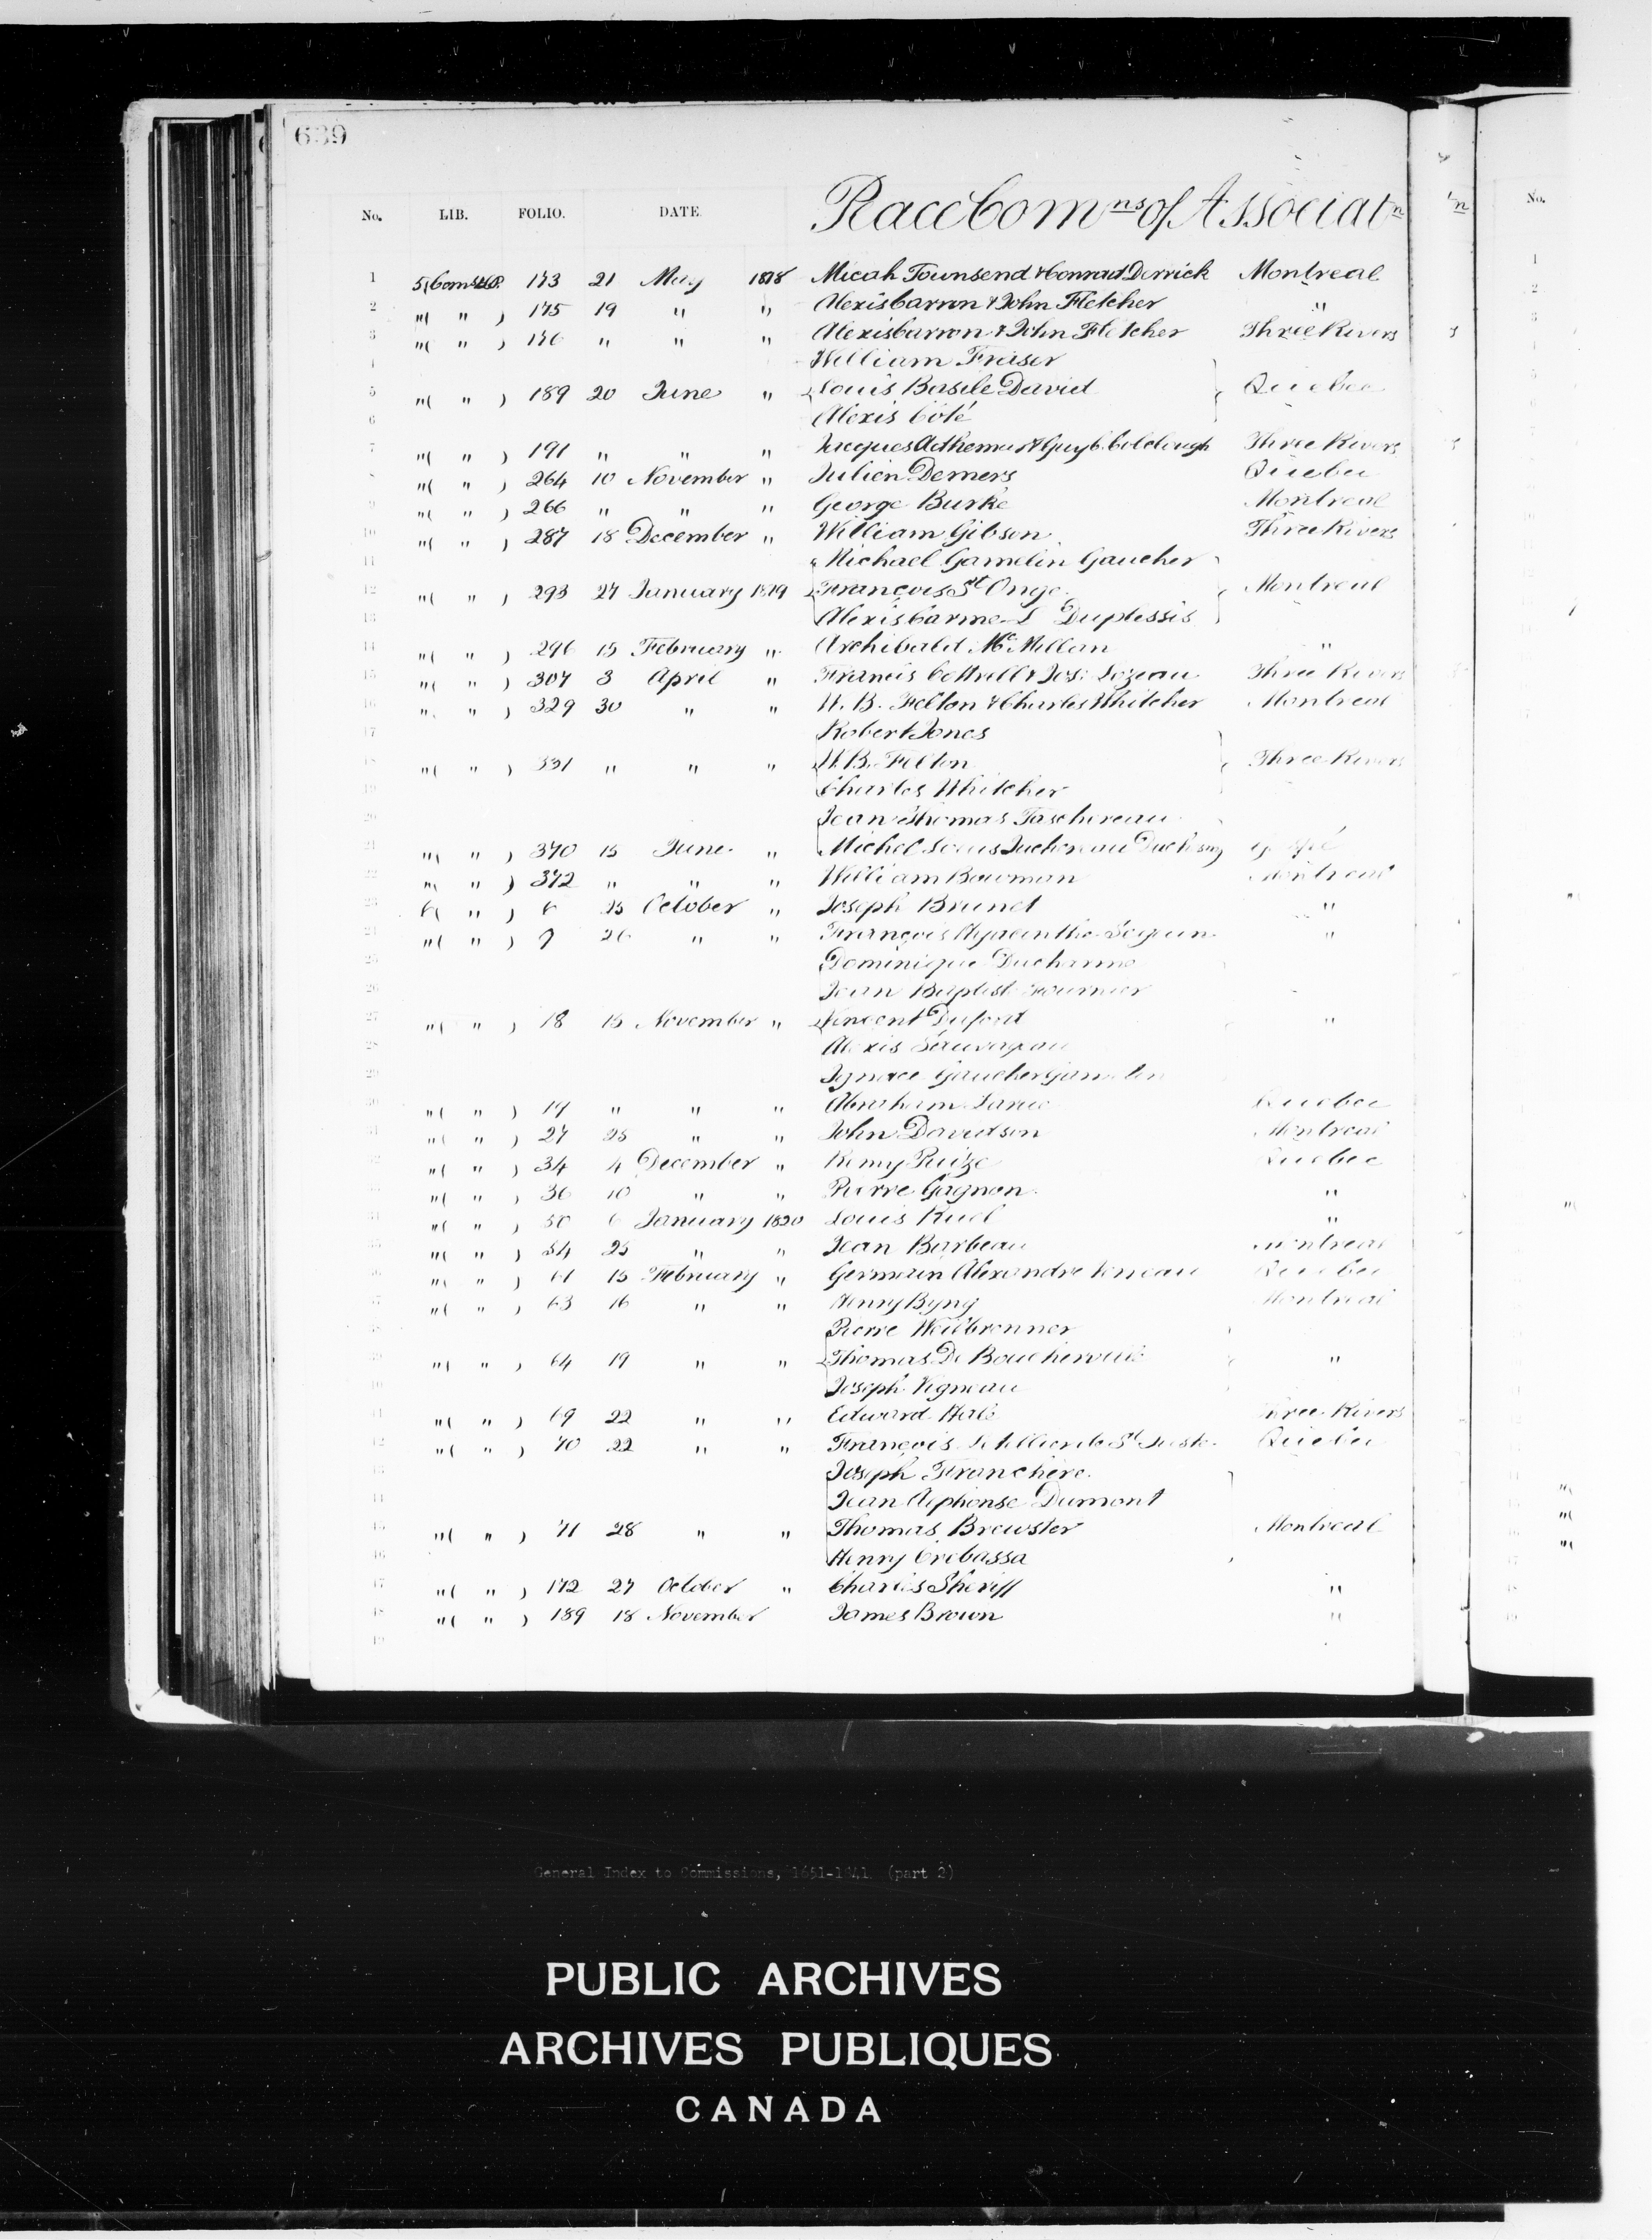 639
No. LIB. FOLIO. DATE. Racc Com ns of Associat n
1 5( Coms 173 21 May 1818 Micah Townsend & Conrad Derrick Montreal
2 "( " ) 175 19 " " Alexis Carron & John Fletcher "
3 "( " ) 176 " " " Alexis Carron & John Fletcher Three Rivers
4 William Fraser
5 "( " ) 189 20 June " Louis Basile David Quebec
6 Alexis Côté
7 "( " ) 191 " " " Jacques Adhemar & Guy C. Colclough Three Rivers
8 "( " ) 264 10 November " Julien Demers Quebec
9 "( " ) 266 " " " George Burke Montreal
10 "( " ) 287 18 December " William Gibson Three Rivers
11 Michael Gamelin Gaucher
12 "( " ) 293 27 January 1819 François St Onge Montreal
13 Alexis Carme L Duplessis
14 "( " ) 296 15 February " Archibald McMillan "
15 "( " ) 307 3 April " Francis Cottrell & Jos: Lozeau Three Rivers
16 "( " ) 329 30 " " W. B. Felton & Charles Whitcher Montreal
17 Robert Jones
18 "( " ) 331 " " " W. B. Felton Three Rivers
19 Charles Whitcher
20 Jean Thomas Taschereau
21 "( " ) 370 15 June " Michel Louis Juchereau Duchesnay Gaspé
22 "( " ) 372 " " " William Bowman Montreal
23 6( " ) 6 25 October " Joseph Brunet "
24 "( " ) 7 26 " " François Hyacinthe Séguin "
25 Dominique Ducharme
26 Jean Baptiste Fournier
27 "( " ) 18 15 November " Vincent Dufort "
28 Alexis Sauvageau
29 Ignace Gaucher Gamelin
30 "( " ) 19 " " " Abraham Larue Quebec
31 "( " ) 27 25 " " John Davidson Montreal
32 "( " ) 34 4 December " Remy Quebec
33 "( " ) 36 10 " " Pierre Gagnon "
34 "( " ) 50 6 January 1820 Louis Ruel "
35 "( " ) 54 25 " " Jean Barbeau Montreal
36 "( " ) 61 15 February " Germain Alexandre Verreau Quebec
37 "( " ) 63 16 " " Henry Byng Montreal
38 Pierre Weilbrenner
39 "( " ) 64 19 " " Thomas De Boucherville "
40 Joseph Vigneau
41 "( " ) 69 22 " " Edward Hale Three Rivers
42 "( " ) 70 22 " " François Letellier de St Just Quebec
43 Joseph Franchère
44 Jean Alphonse Dumont
45 "( " ) 71 28 " " Thomas Brewster Montreal
46 Henry Crebassa
47 "( " ) 172 27 October " Charles Sheriff "
48 "( " ) 189 18 November James Brown "
49
General Index to Commissions, 1651-1841 (part 2)
PUBLIC ARCHIVES
ARCHIVES PUBLIQUES
CANADA